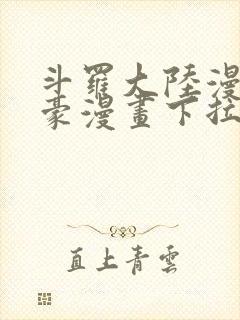 斗羅大陸漫
豪漫畫下拉
直上青雲